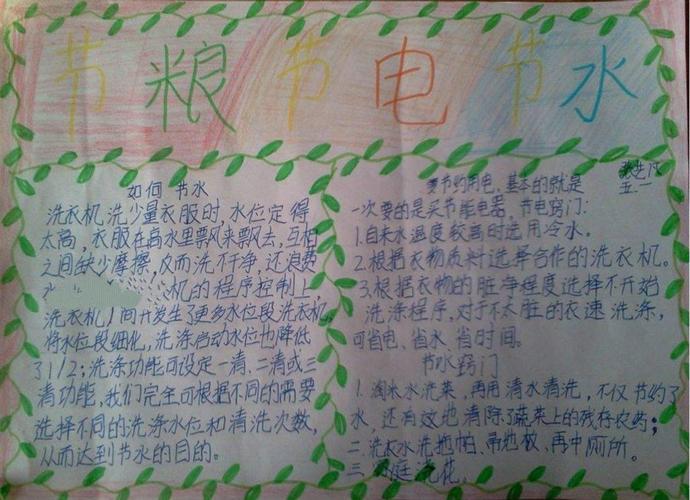 节粮节电节水
如何 节水
洗衣机洗少量衣服时,水位定得
太高,衣服在高水里票风来票飞去,互相
之间缺少摩擦,反而洗不干净,还浪费
水
机的程序控制上
洗衣机厂间开发生了更多水位段洗衣机,
将水位段细化,洗涤启动水位也降低
了1/2;洗涤功能可设定一清、二清或三
清功能,我们完全可根据不同的需要
选择不同的洗涤水位和清洗次数,
从而达到节水的目的。
五·一
要节约用电、基本的就是
一次要的是买节能电器、节电窍门:
1.自来水温度较高时选用冷水。
2.根据衣物质料选择合作的洗衣机。
3.根据衣物的脏净程度选择不开始
洗涤程序,对于不太脏的衣速洗涤,
可省电、省水、省时间。
节水窍门
1.淘米水洗菜,再用清水清洗,不仅节约了
水,还有效地清除了蔬菜上的残存农药;
二.洗衣水洗拖帕、帚地板、再冲厕所。
三 庭浇花。